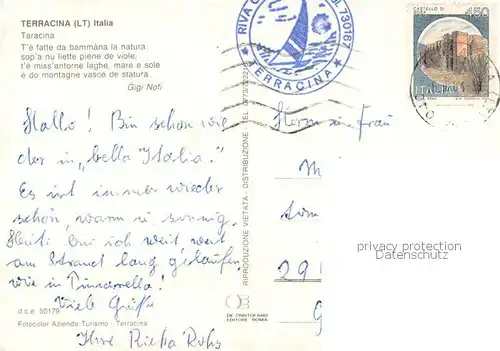 TERRACINA (LT) Italia
Taracina
T'è fatte da bammàna la natura
sop'a nu liette piene de viole;
t'è miss'antorne laghe, mare e sole
é do montagne vasce de statura.
Gigi Nofi
Hallo! Bin schon wie
der in „bella Italia."
Es ist immer wieder
schön, warm u sonnig.
Heute bin ich weit, weit
am Strand lang gelaufen
wie in Pinarella!
Viele Grüße
Ihre
d.c.e. 50179
Fotocolor Azienda Turismo - Terracina
RIPRODUZIONE VIETATA - DISTRIBUZIONE - TEL.
DE CRISTOFARO
EDITORE ROMA
RIVA
730167
TERRACINA
CASTELLO DI
450
ITALIA
Herrn u Frau
M
291
G
privacy protection
Datenschutz